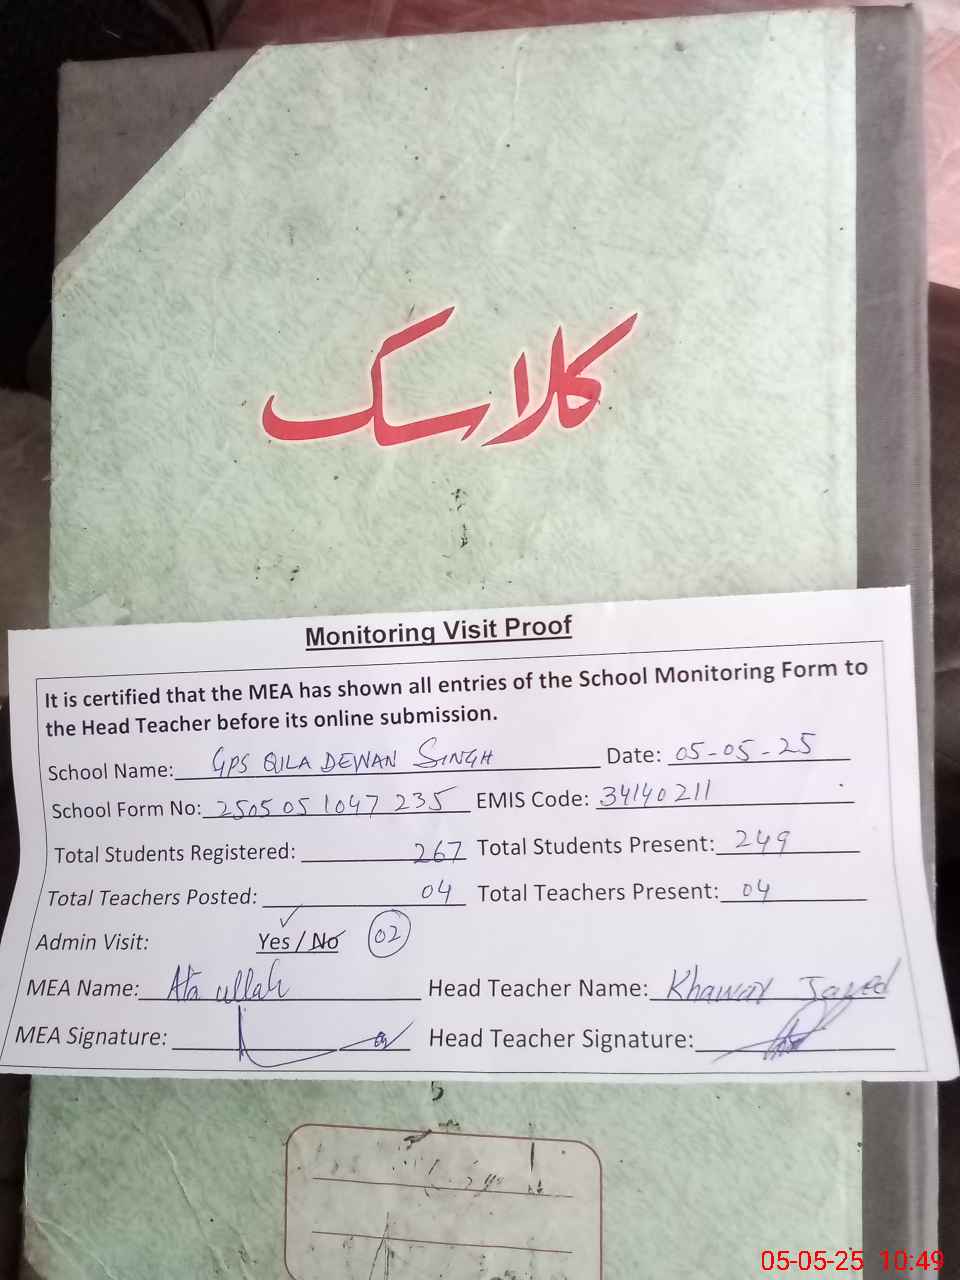 کلاسک
Monitoring Visit Proof
It is certified that the MEA has shown all entries of the School Monitoring Form to
the Head Teacher before its online submission.
School Name: GPS QILA DEWAN SINGH Date: 05-05-25
School Form No: 250505 1047 235 EMIS Code: 34140211
Total Students Registered: 267 Total Students Present: 249
Total Teachers Posted: 04 Total Teachers Present: 04
Admin Visit: Yes / No 02
MEA Name: Ata ullah Head Teacher Name: Khawar Javed
MEA Signature: Head Teacher Signature:
05-05-25 10:49